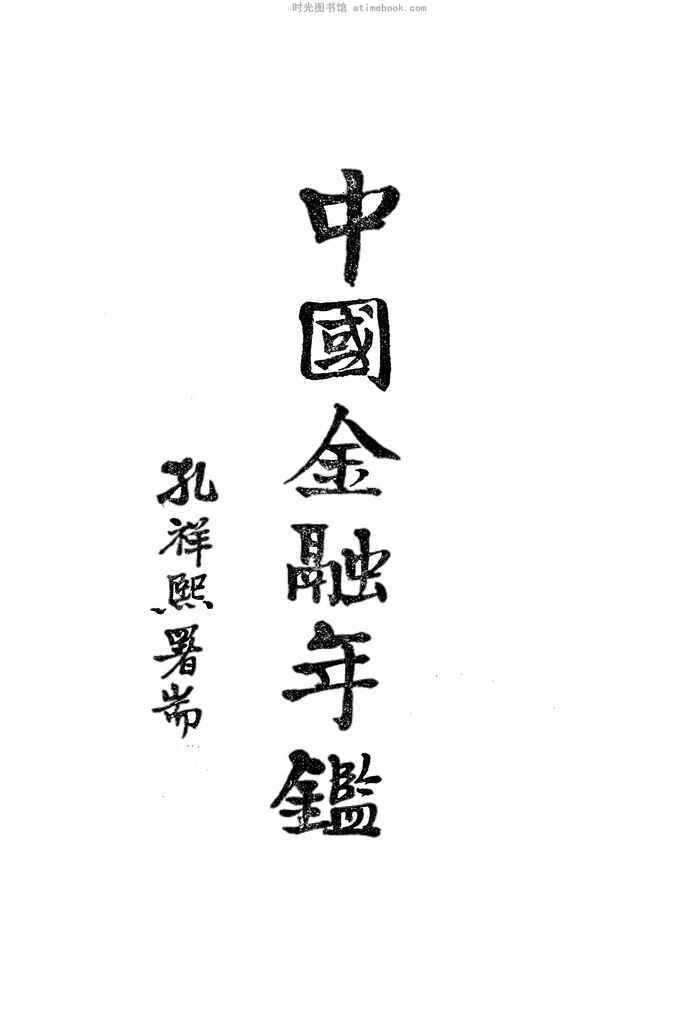 时光图书馆 atimebook.com
中國金融年鑑
孔祥熙署耑